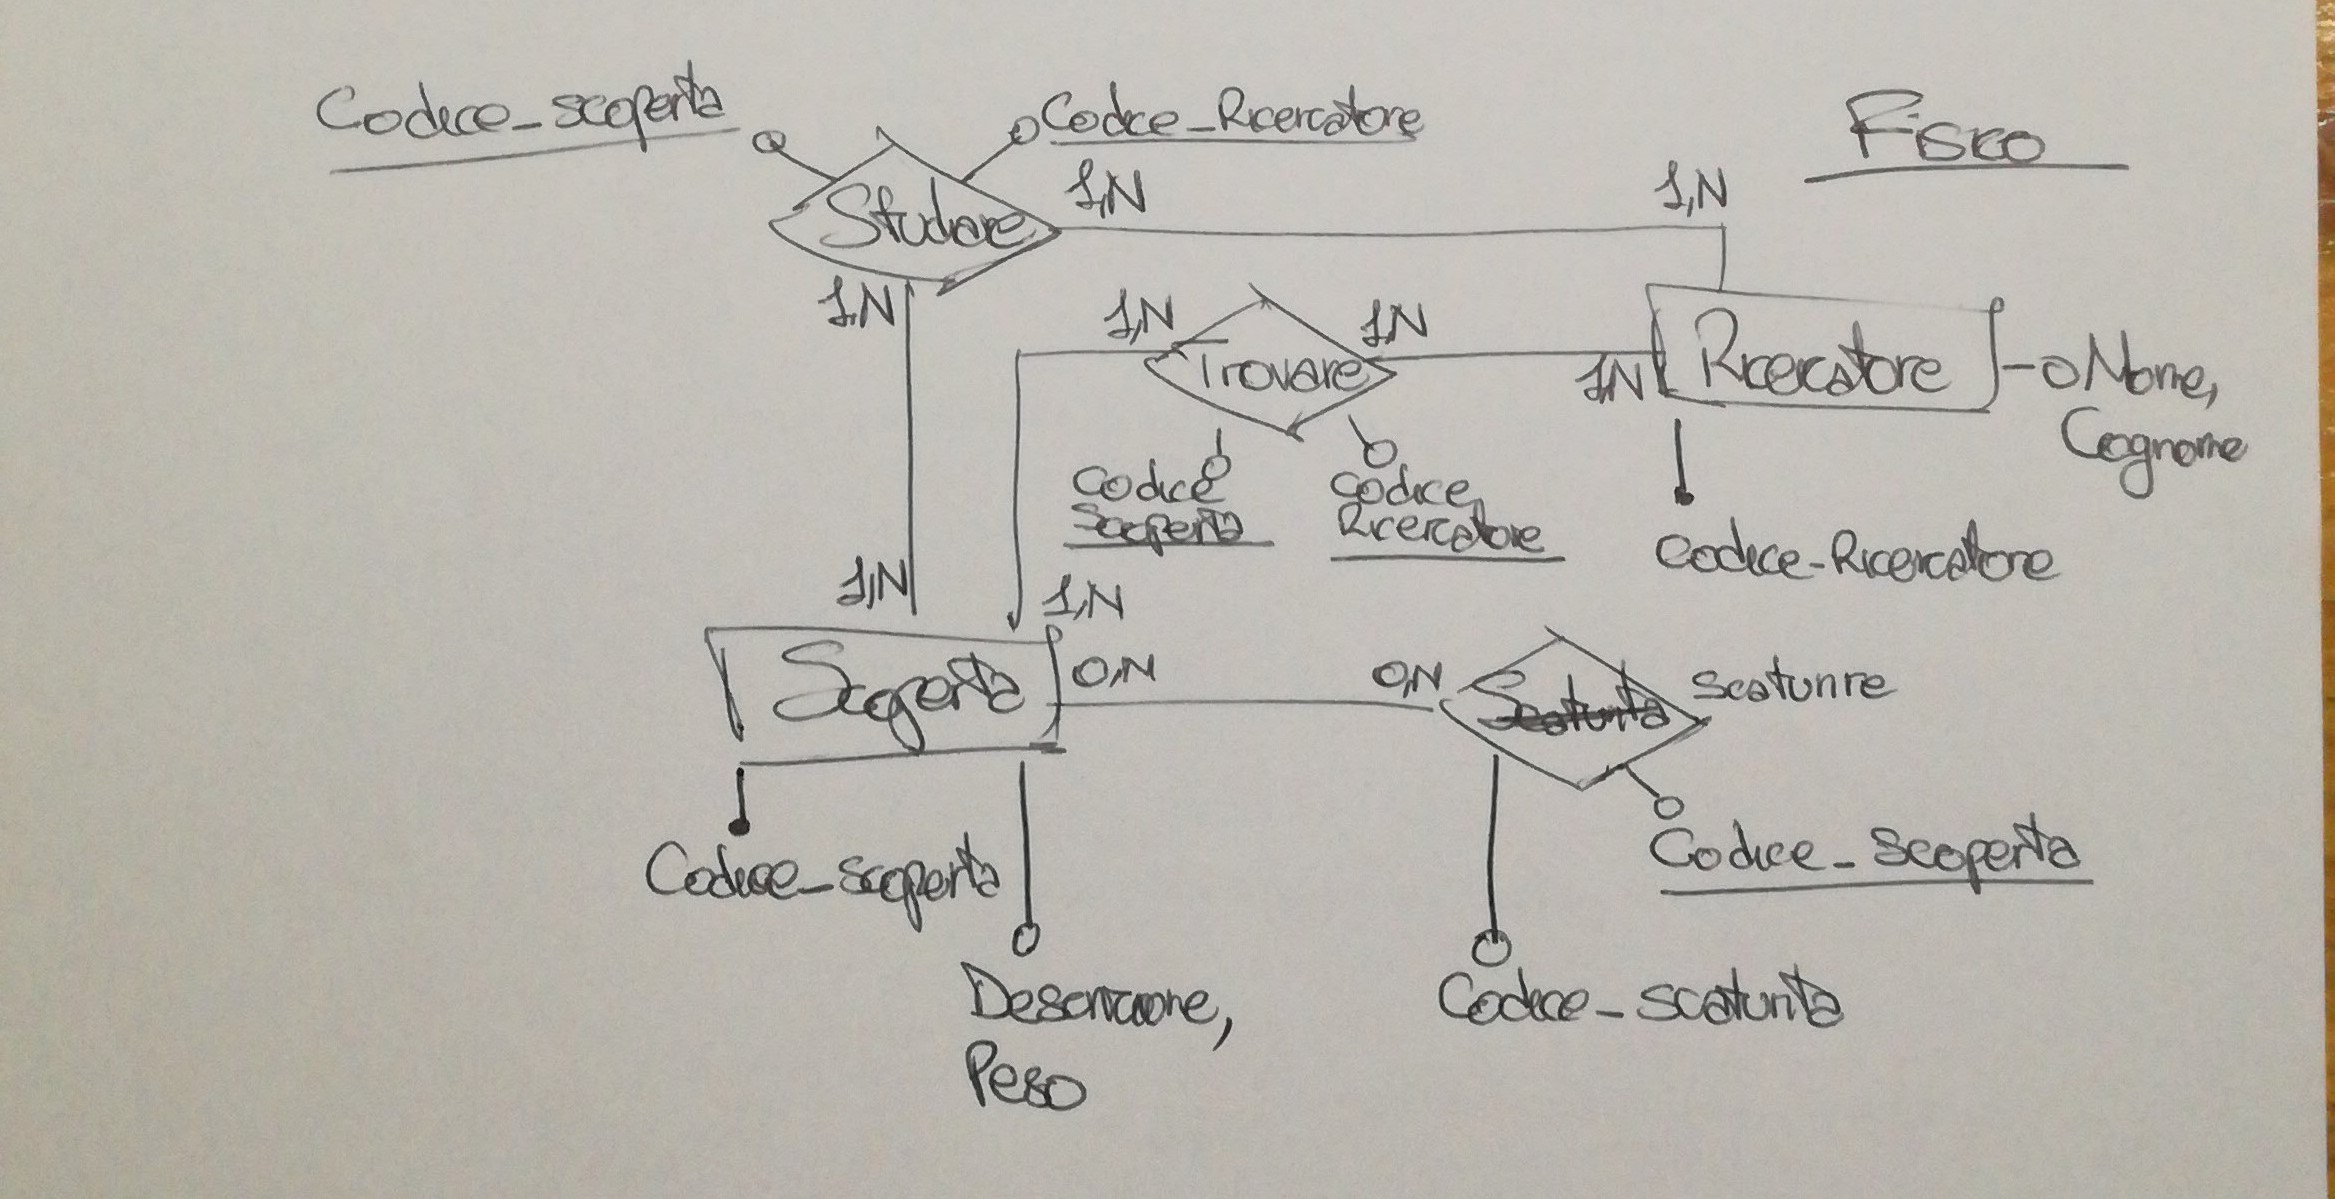 Codice_scoperta
Codice_Ricercatore
Fisico
1,N
1,N
Studiare
1,N
1,N
1,N
Trovare
1,N
Ricercatore
Nome,
Cognome
Codice
Scoperta
Codice
Ricercatore
Codice-Ricercatore
1,N
1,N
Scoperta
0,N
0,N
Scaturita
scaturire
Codice_scoperta
Codice_scoperta
Descrizione,
Peso
Codice_scaturita